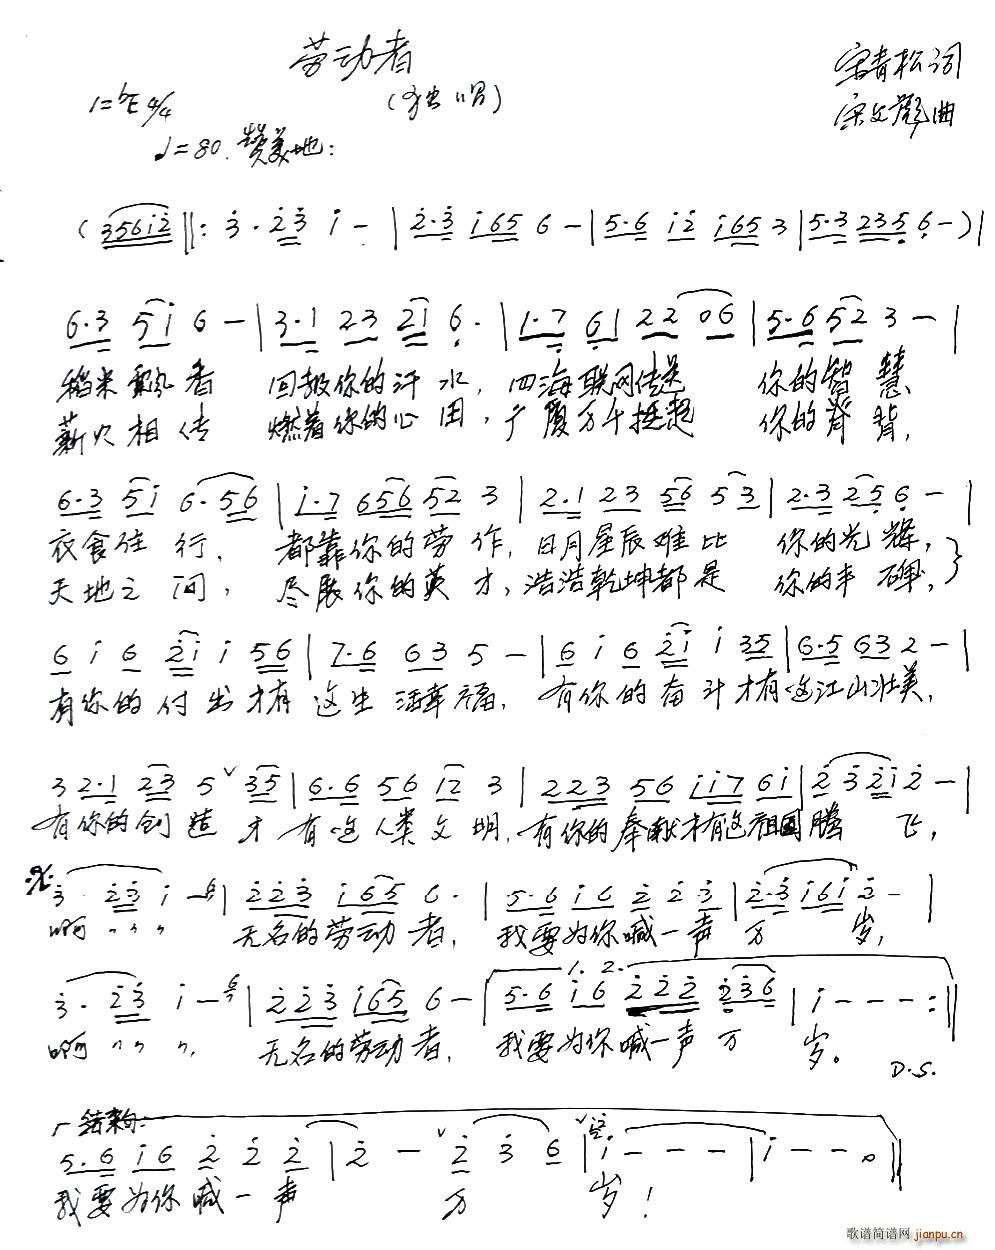 劳动者
(独唱)
宋青松词
宋文彪曲
1=♭E 4/4
♩=80. 赞美地:
(356i2 ||: 3·23 i - | 2·3 i65 6 - | 5·6 i2 i65 3 | 5·3 235 6 -) |
6·3 5i 6 - | 3·1 23 21 6· | 1·7 61 22 06 | 5·6 52 3 - |
稻米飘香 回报你的汗水, 四海联网传送 你的智慧、
薪火相传 燃着你的心田, 广厦万千挺起 你的脊背,
6·3 5i 6·56 | i·7 656 52 3 | 2·1 23 56 53 | 2·3 25 6 - |
衣食住行, 都靠你的劳作, 日月星辰难比 你的光辉,
天地之间, 尽展你的英才, 浩浩乾坤都是 你的丰碑,}
6 i 6 2i i 56 | 7·6 63 5 - | 6 i 6 2i i 35 | 6·5 63 2 - |
有你的付出才有这生活幸福, 有你的奋斗才有这江山壮美,
3 2·1 23 5 ˅ 35 | 6·6 56 i2 3 | 223 56 ii7 6i | 2 3 2i 2 - |
有你的创造 才有这人类文明, 有你的奉献才有这祖国腾飞,
3·23 i - | 223 i65 6· | 5·6 i6 2 2 3 | 2·3 i6i 2 - |
啊 〃〃〃 无名的劳动者, 我要为你喊一声万岁,
1. 2.
3·23 i - | 223 i65 6 - | 5·6 i6 222 236 | i - - - :||
啊 〃〃〃, 无名的劳动者, 我要为你喊一声万岁。
D.S.
结束句:
5·6 i6 2 2 2 | 2 - ˅ 2 3 6 | ˅ i - - - | i - - 0 ||
我要为你喊一声 万 岁!
歌谱简谱网 jianpu.cn